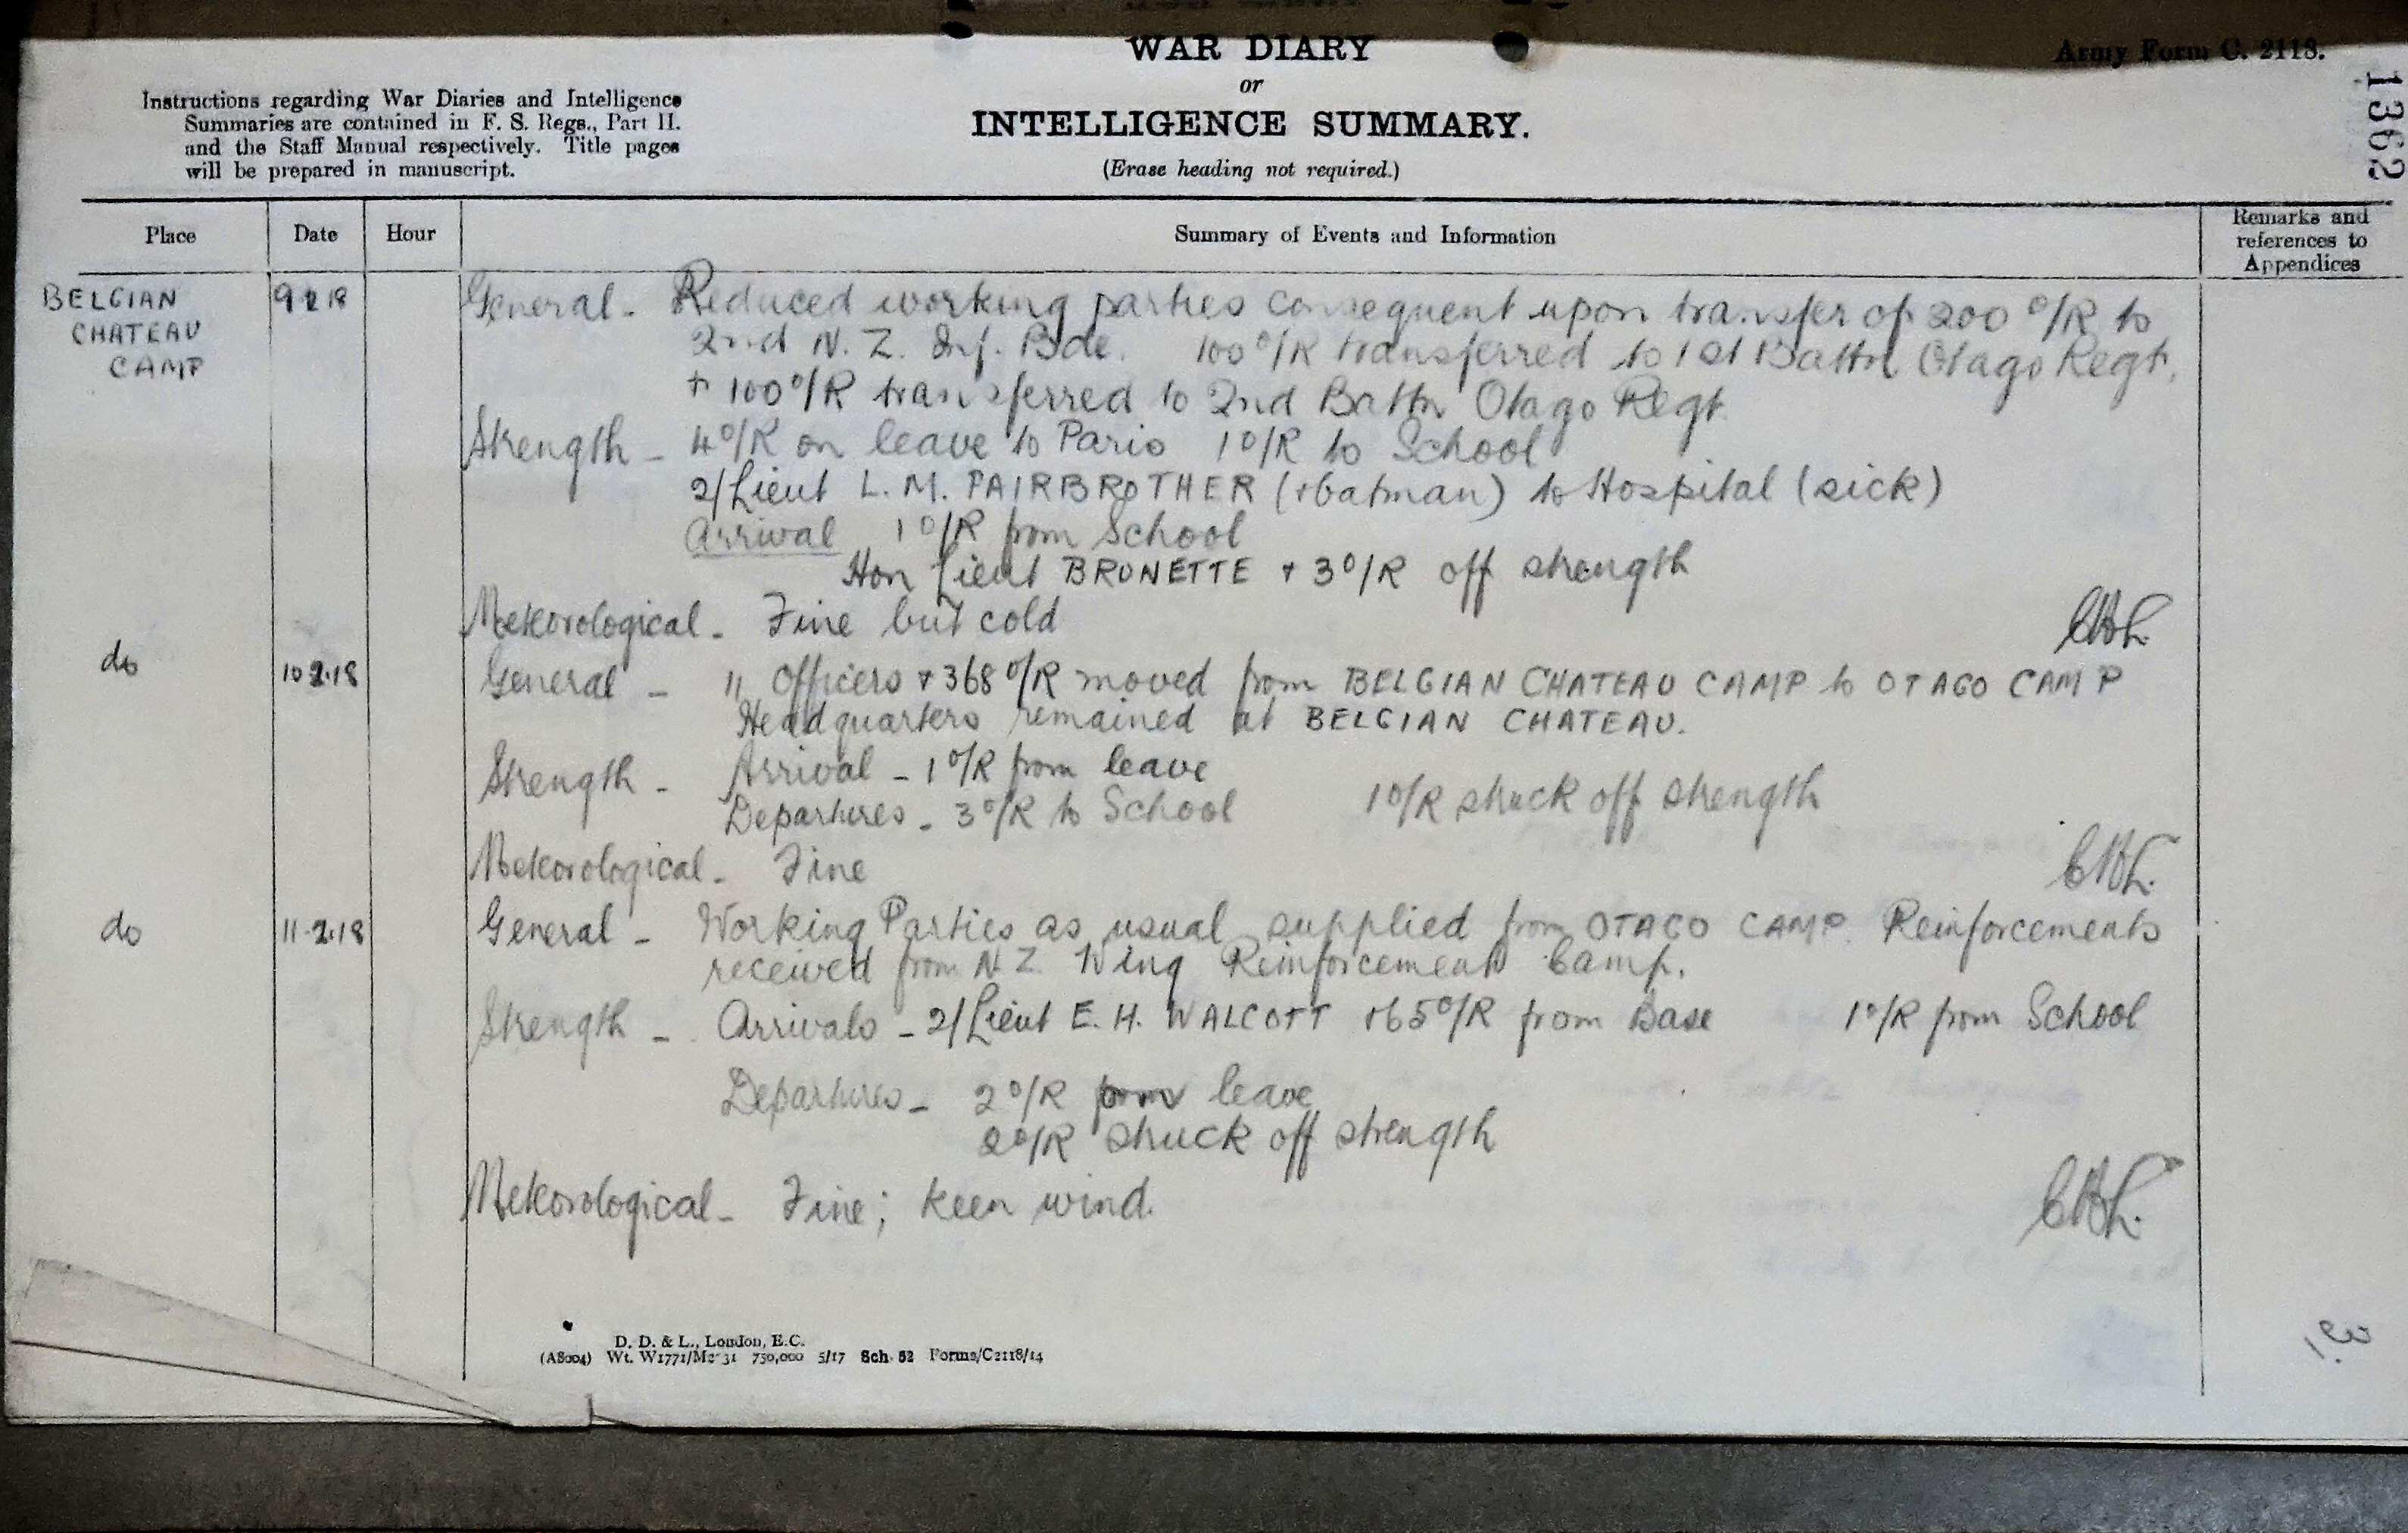 WAR DIARY
or
INTELLIGENCE SUMMARY.
(Erase heading not required.)
Army Form C. 2118.
1362
Instructions regarding War Diaries and Intelligence
Summaries are contained in F. S. Regs., Part II.
and the Staff Manual respectively. Title pages
will be prepared in manuscript.
Place Date Hour Summary of Events and Information Remarks and references to Appendices
BELGIAN CHATEAU CAMP 9 2 18 General - Reduced working parties consequent upon transfer of 200 O/R to
2nd N. Z. Inf. Bde. 100 O/R transferred to 1st Battn Otago Regt,
+ 100 O/R transferred to 2nd Battn Otago Regt
Strength - 4 O/R on leave to Paris 1 O/R to School
2/Lieut L. M. FAIRBROTHER (+ batman) to Hospital (sick)
Arrival 1 O/R from School
Hon Lieut BRUNETTE + 3 O/R off strength
Meteorological - Fine but cold
do 10 2.18 General - 11 Officers + 368 O/R moved from BELGIAN CHATEAU CAMP to OTAGO CAMP
Headquarters remained at BELGIAN CHATEAU.
Strength - Arrival - 1 O/R from leave
Departures - 3 O/R to School 1 O/R struck off strength
Meteorological - Fine
do 11-2.18 General - Working Parties as usual supplied from OTAGO CAMP. Reinforcements
received from N Z. Wing Reinforcement Camp.
Strength - Arrivals - 2/Lieut E. H. WALCOTT + 65 O/R from Base 1 O/R from School
Departures - 2 O/R from leave
2 O/R struck off strength
Meteorological - Fine; keen wind.
D. D. & L., London, E.C.
(A8004) Wt. W1771/M2 31 750,000 5/17 Sch. 52 Forms/C2118/14